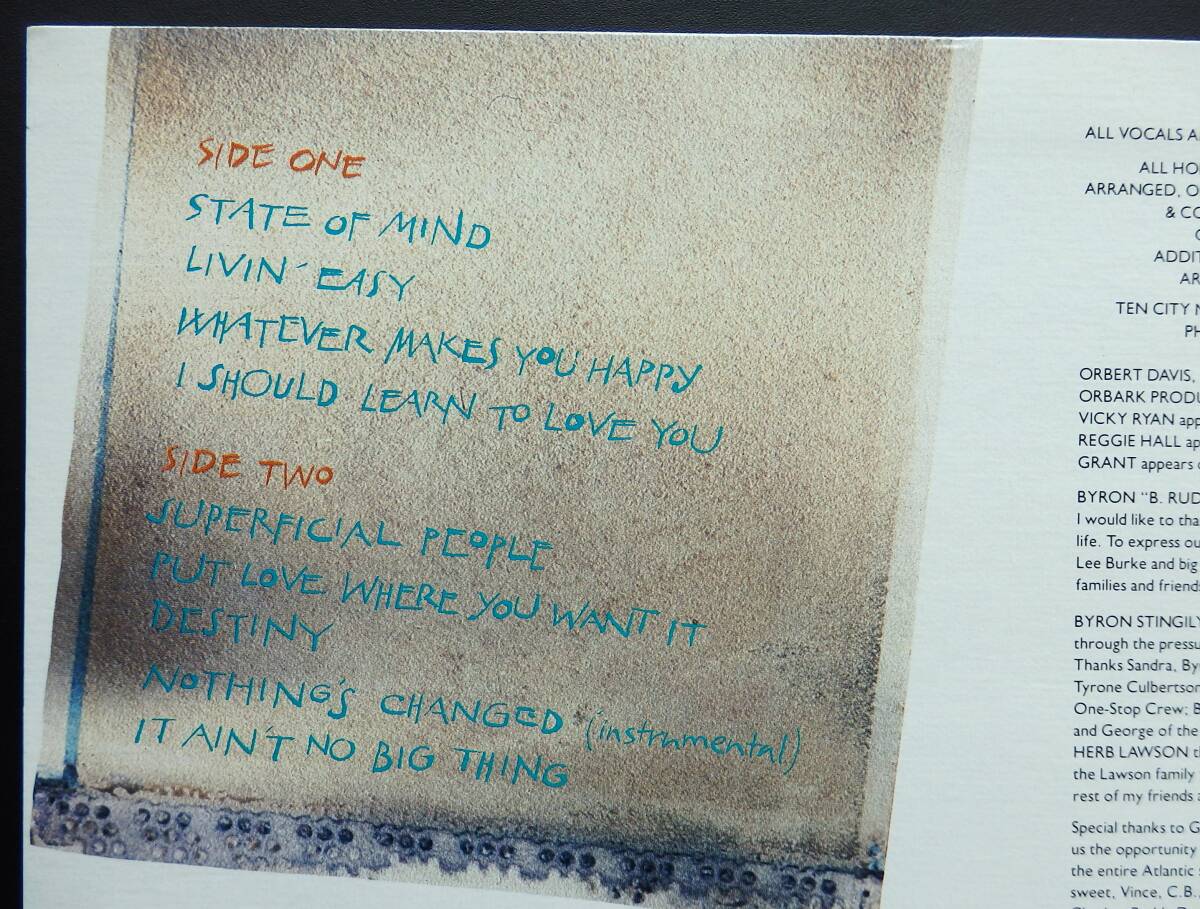 SIDE ONE
STATE OF MIND
LIVIN' EASY
WHATEVER MAKES YOU HAPPY
I SHOULD LEARN TO LOVE YOU
SIDE TWO
SUPERFICIAL PEOPLE
PUT LOVE WHERE YOU WANT IT
DESTINY
NOTHING'S CHANGED (instrumental)
IT AIN'T NO BIG THING
ALL VOCALS
ALL
ARRANGED,
&
ADDIT
AR
TEN CITY
PH
ORBERT DAVIS,
ORBARK PRODU
VICKY RYAN app
REGGIE HALL ap
GRANT appears
BYRON "B. RUD
I would like to tha
life. To express ou
Lee Burke and big
families and friend
BYRON STINGILY
through the pressu
Thanks Sandra, By
Tyrone Culbertson
One-Stop Crew; B
and George of the
HERB LAWSON t
the Lawson family
rest of my friends
Special thanks to G
us the opportunity
the entire Atlantic
sweet, Vince, C.B.